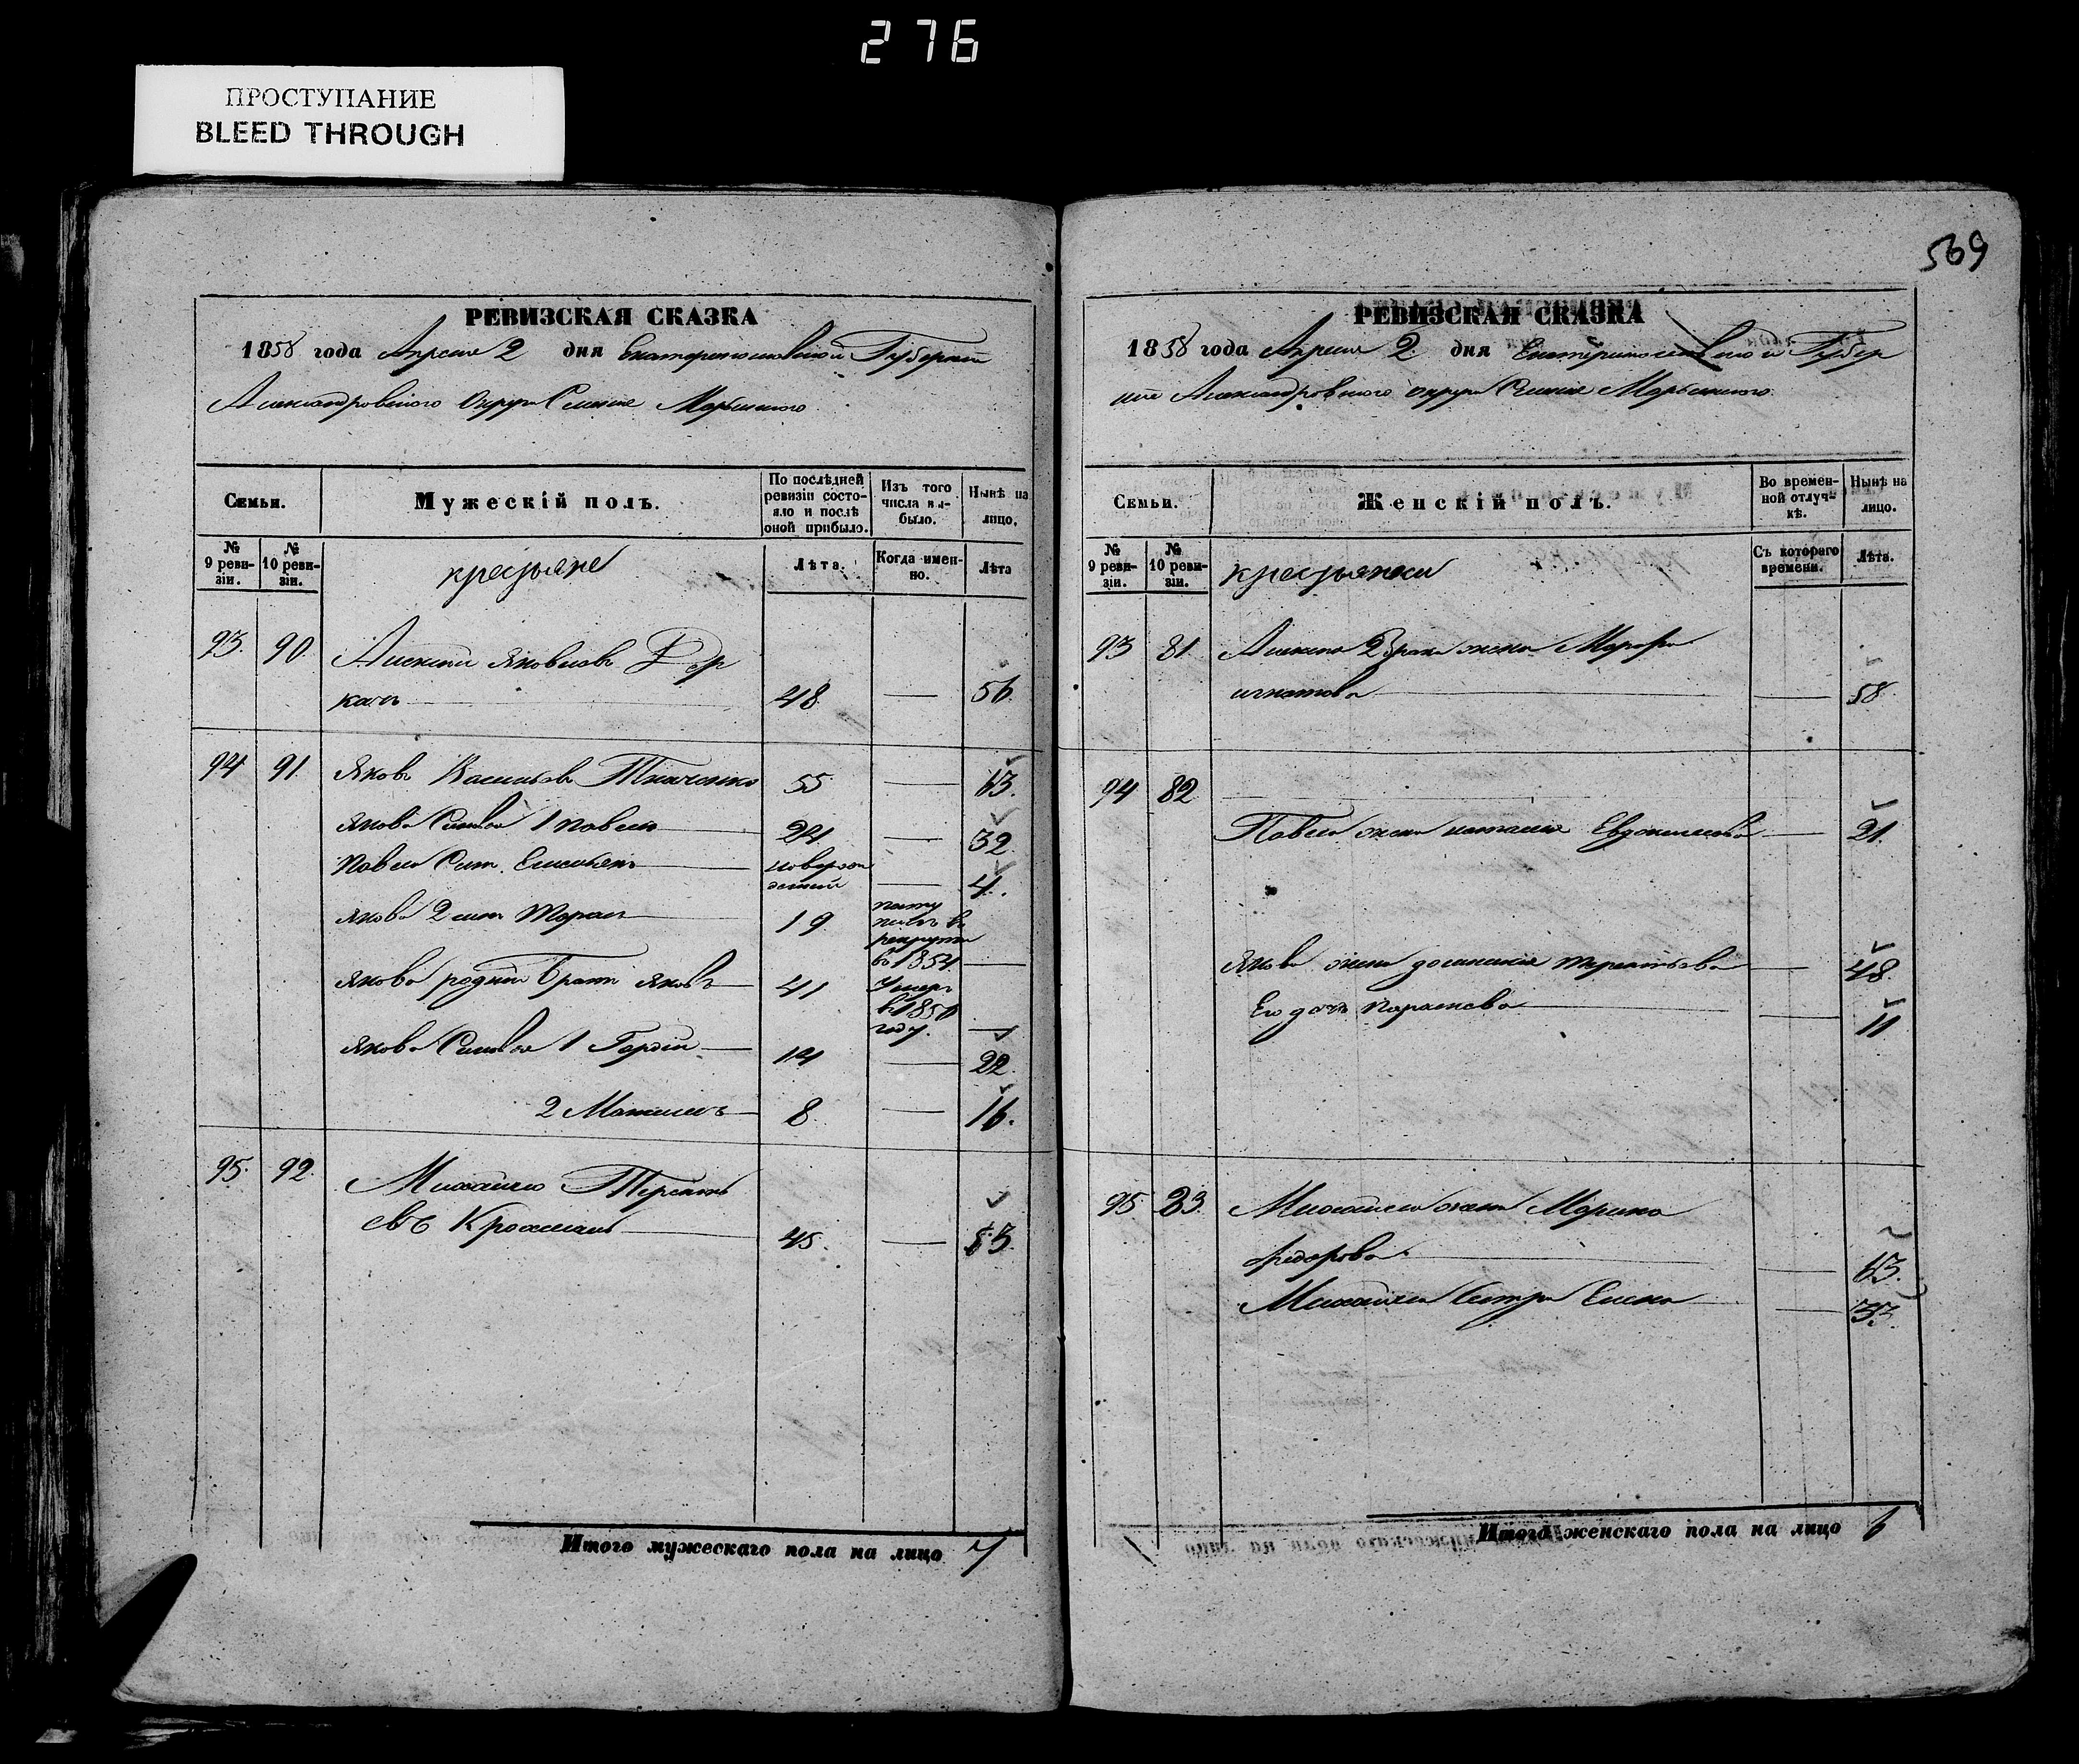 276
ПРОСТУПАНИЕ
BLEED THROUGH
569
РЕВИЗСКАЯ СКАЗКА
1858 года Апреля 2 дня Екатеринославской Губернии
Александровского Округа Селения Марьинского
Семьи.
Мужескій полъ.
По послѣдней ревизіи состояло и послѣ оной прибыло.
Изъ того числа выбыло.
Нынѣ на лицо.
№ 9 ревизіи.
№ 10 ревизіи.
крестьяне
Лѣта.
Когда именно.
Лѣта
93. 90. Яковлевъ Дер
качъ 48 — 56
94 91. Яковъ Васильевъ Ткаченко 55 — 63.
Якова Сыновья 1 Павелъ 24 — 32
Павла Сынъ 4.
Якова 2 сынъ 19 в рекруты в 1854 —
Якова родной братъ Яковъ 41 Умеръ в 1856 году. —
Якова Сыновья 1 Гордей 14 — 22.
2 8. — 16.
95. 92. Михайло Терентьевъ 45. — 53.
Итого мужескаго пола на лицо 7
РЕВИЗСКАЯ СКАЗКА
1858 года Апреля 2. дня Екатеринославской Губер
нии Александровского округа Селения Марьинского
Семьи.
Женскій полъ.
Во временной отлучкѣ.
Нынѣ на лицо.
№ 9 ревизіи.
№ 10 ревизіи.
крестьянки
Съ котораго времени.
Лѣта.
93 81 жена
игнатова — 58
94 82
Павла жена наталия Евдокимова — 21.
Якова жена — 48.
Его дочь — 11
95. 83. Михайла жена Марина
федорова — 63.
Михайла Сестра Елена — 33.
Итого женскаго пола на лицо 6